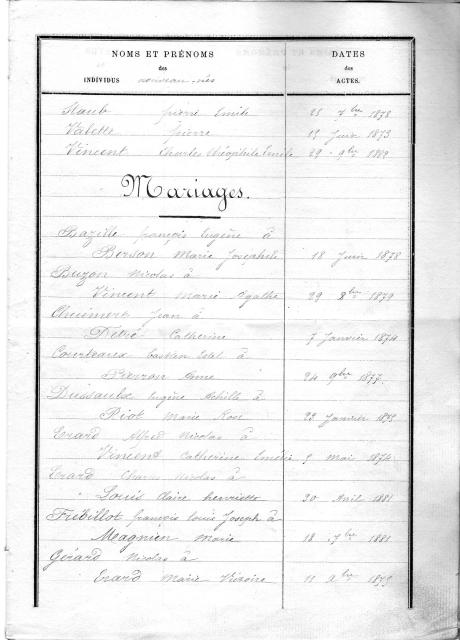 NOMS ET PRÉNOMS DATES
des des
INDIVIDUS nouveau-nés ACTES.
Staub Pierre Emile 25 7bre 1878
Valette Pierre 15 Juin 1873
Vincent Charles Théophile Emile 29 9bre 1882
Mariages.
Bazille françois Eugène à
Berson Marie Joséphine 18 Juin 1878
Buzon Nicolas à
Vincent Marie Agathe 29 8bre 1879
Jean à
Catherine 7 Janvier 1874
Courteaux Bastien à
24 9bre 1877
Dussaulx Eugène Achille à
Piot Marie Rose 23 Janvier
Erard Alfred Nicolas à
Vincent Catherine Emélie 5 Mai 1874
Erard Nicolas à
Louis Claire henriette 20 Avril 1881
Frébillot françois Louis Joseph à
Magnien Marie 18 7bre 1881
Gérard Nicolas à
Erard Marie Victoire 11 9bre 1875